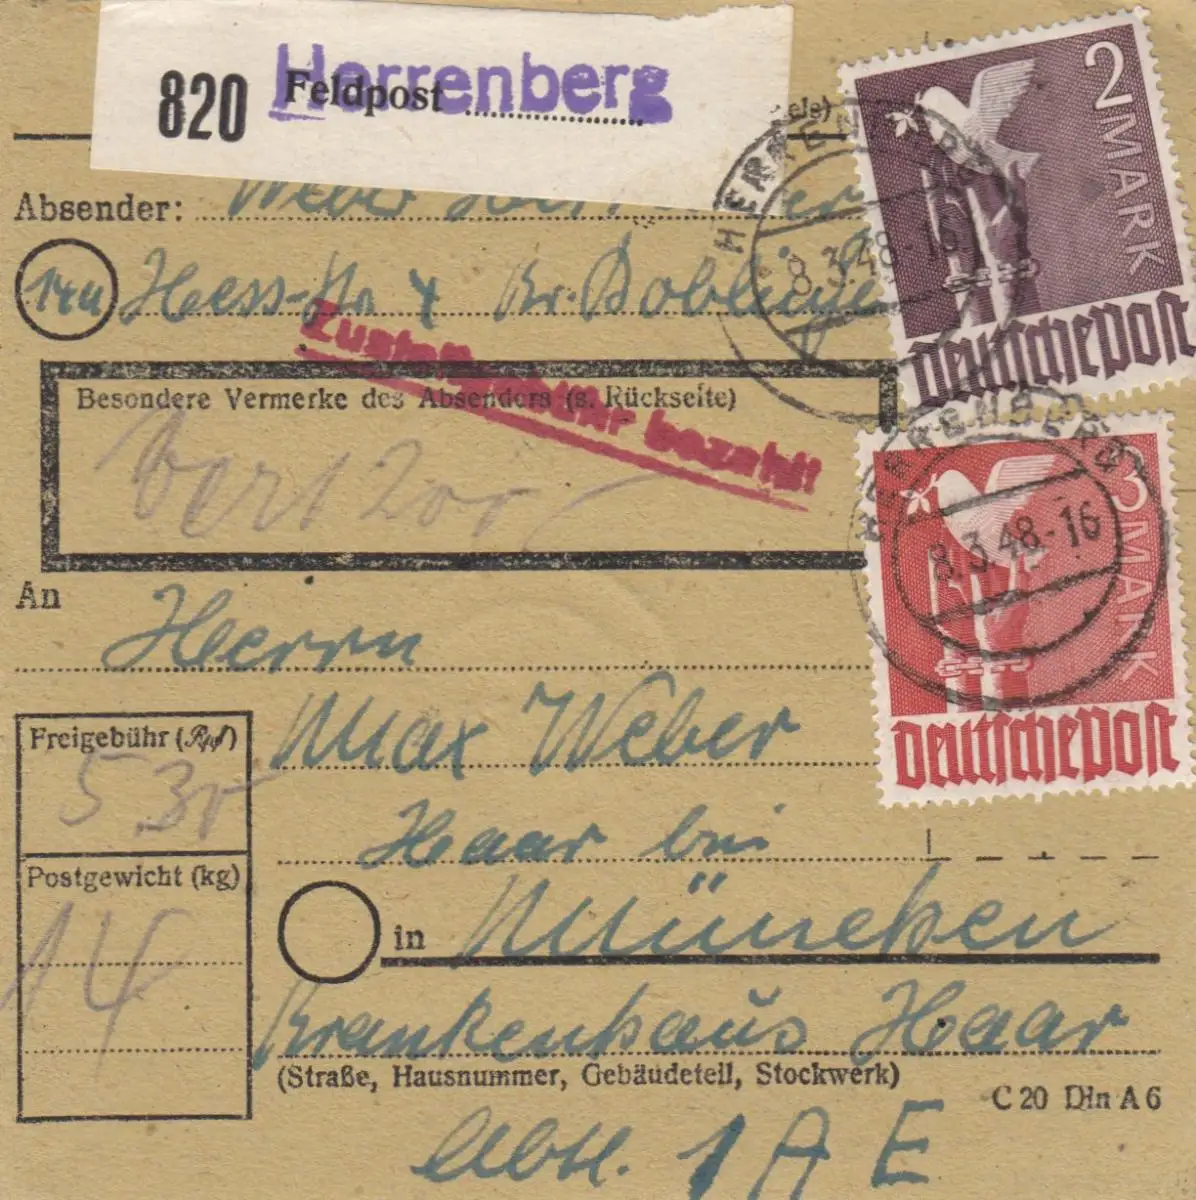 820 Feldpost Herrenberg
Absender: Weber
14a Hess-Str 4 Kr. Böblingen
Zustellgebühr bezahlt
Besondere Vermerke des Absenders (s. Rückseite)
Wert 200,-
An
Herrn
Max Weber
Haar bei
in München
Krankenhaus Haar
(Straße, Hausnummer, Gebäudeteil, Stockwerk)
C 20 Din A 6
Abtl. 1 A E
Freigebühr (Rpf)
530
Postgewicht (kg)
14
2 MARK
Deutsche Post
HERRENBERG
8.3.48.-16
3 MARK
Deutsche Post
HERRENBERG
8.3.48.-16